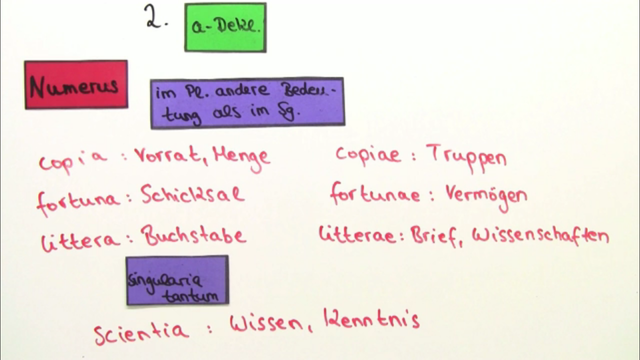 2. a-Dekl.
Numerus
im Pl. andere Bedeu-
tung als im Sg.
copia : Vorrat, Menge copiae : Truppen
fortuna : Schicksal fortunae : Vermögen
littera : Buchstabe litterae : Brief, Wissenschaften
Singularia
tantum
scientia : Wissen, Kenntnis